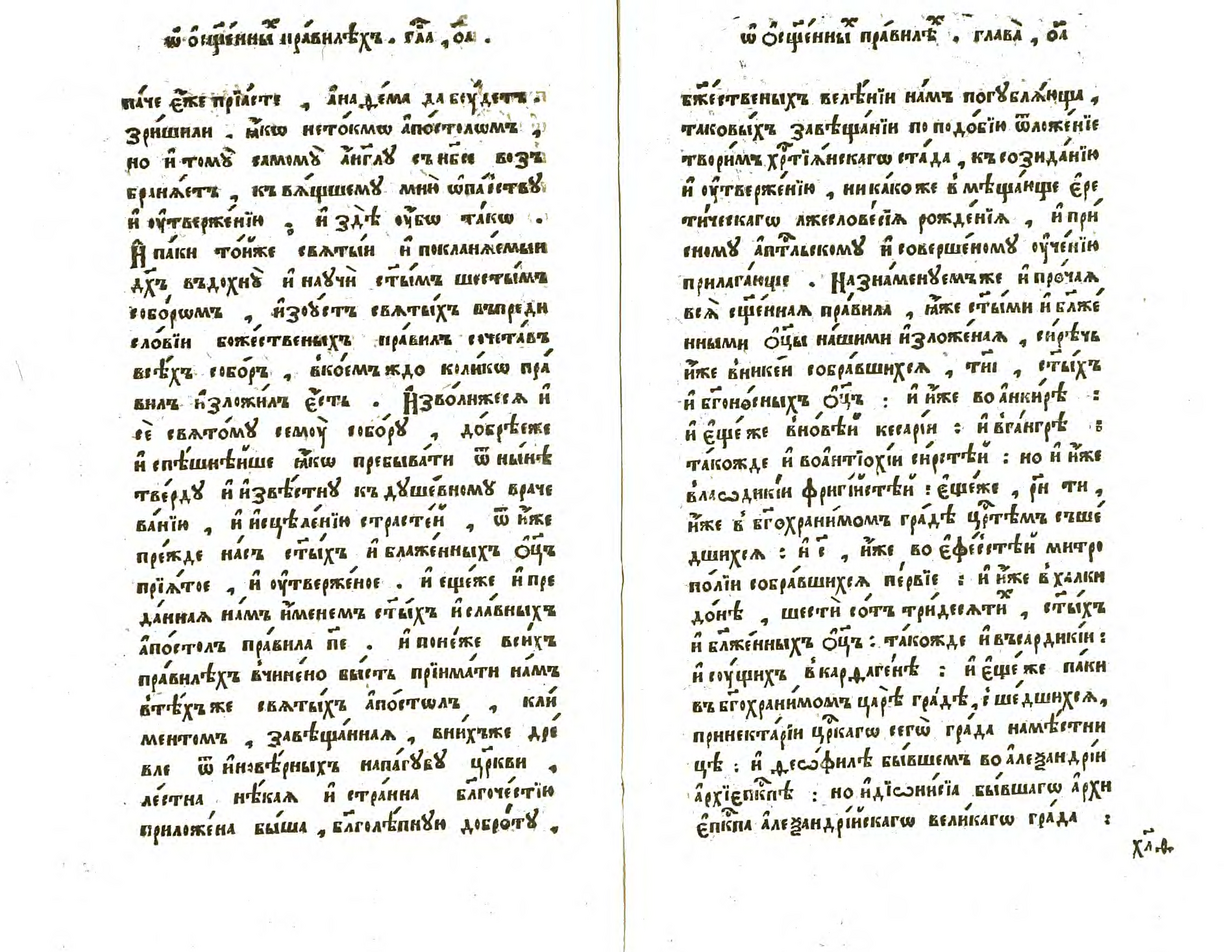 ѿ ѻсщ҃е́нныⷯ пра́вилѣхъ . гл҃а , о҃а .
па́че є҆́же прїѧ́сте , а҆на́ѳема да бꙋ́детъ .
зрѝшили . ꙗ҆́кѡ нето́кмѡ а҆по́столѡмъ ,
но и҆ томꙋ̀ самомꙋ̀ а҆́гг҃лꙋ съ нб҃сѐ воз̾
бранѧ́етъ , къ вѧ́щшемꙋ мню̀ ѡ҆па́сствꙋ
и҆ ᲂу҆твержє́нїю , и҆ здѣ̀ ᲂу҆́бѡ та́кѡ .
И҆ па́ки то́йже свѧты́й и҆ покланѧ́емый
дх҃ъ въдохнꙋ̀ и҆ наꙋчѝ ст҃ы́мъ шесты́мъ
собо́рѡмъ , и҆зоу́стъ свѧты́хъ въпреди
сло́вїи боже́ственыхъ пра́вилъ сочета́въ
всѣ́хъ собо́ръ , в̾ко́емъждо коли́кѡ пра́
вилъ и҆зложи́лъ є҆́сть . И҆зво́лижесѧ и҆
сѐ свѧто́мꙋ семоу̀ собо́рꙋ , до́брѣеже
и҆ спѣ́шнѣйше ꙗ҆́кѡ пребыва́ти ѿ ны́нѣ
тве́рдꙋ и҆ и҆звѣ́стнꙋ къ дꙋше́вномꙋ враче
ва́нїю , и҆ и҆сцѣле́нїю страсте́й , ѿ и҆́же
пре́жде на́съ ст҃ы́хъ и҆ блаже́нныхъ ѻ҆ц҃ъ
прїѧ́тое , и҆ ᲂу҆твержє́ное . и҆ еще́же и҆ пре
да́ннаѧ на́мъ и҆́менемъ ст҃ы́хъ и҆ сла́вныхъ
а҆по́столъ пра́вила п҃е . и҆ поне́же всѝхъ
пра́вилѣхъ в̾чине́но бы́сть прїима́ти на́мъ
в̾тѣ́хъже свѧты́хъ а҆по́столъ , кли́
ментомъ , завѣща́ннаѧ , вни́хъже дре́
вле ѿ и҆новѣ́рныхъ напа́гꙋбꙋ цр҃кви ,
ле́стна нѣ́каѧ и҆ стра́нна бл҃гоче́стїю
приложе́на бы́ша , бл҃голѣ́пнꙋю добро́тꙋ ,
ѿ ѻсщ҃е́нныⷯ пра́вилѣⷯ . глава̀ , о҃а
бж҃е́ственыхъ велѣ́нїи на́мъ погꙋблѧ́юща ,
таковы́хъ завѣща́нїи по подо́бїю ѿложе́нїе
твори́мъ хрⷭ҇тїѧ́нскагѡ ста́да , къ созида́нїю
и҆ ᲂу҆твержє́нїю , ника́коже в̾мѣща́юще є҆ре
ти́ческагѡ лжесловє́сїѧ рожде́нїѧ , и҆ при́
сномꙋ а҆пⷭ҇тльскомꙋ и҆ соверше́номꙋ ᲂу҆че́нїю
прилага́юще . Назна́менꙋемъже и҆ про́чаѧ
всѧ̀ сщ҃е́ннаѧ пра́вила , ꙗ҆́же ст҃ы́ми и҆ бл҃же́
нными ѻ҆ц҃ы на́шими и҆зложе́наѧ , си́рѣчь
и҆́же в̾нике́и собра́вшихсѧ , т҃иі , ст҃ы́хъ
и҆ бг҃оно́сныхъ ѻ҆ц҃ъ : и҆ и҆́же во а҆нки́рѣ :
и҆ є҆ще́же в̾но́вѣй кеса́рїи : и҆ вга́нгрѣ :
та́кожде и҆ воа҆нтїохі́и си́рстѣй : но и҆ и҆́же
в̾лаѡдикі́и фригі́йстѣй : є҆ще́же , р҃н ти ,
и҆́же в̾ бг҃охрани́момъ гра́дѣ цр҃стѣмъ съше́
дшихсѧ : и҆ с҃ , и҆́же во є҆фе́сстѣй митро
по́лїи собра́вшихсѧ пе́рвїе : и҆ и҆́же в̾халки
до́нѣ , шести́ со́тъ три́десѧтиⷯ , ст҃ы́хъ
и҆ бл҃же́нныхъ ѻ҆ц҃ъ : та́кожде и҆ въсардикі́и :
и҆ соу́щихъ в̾карѳаге́нѣ : и҆ є҆ще́же па́ки
въ бг҃охрани́момъ ца́рѣ гра́дѣ , сше́дшихсѧ ,
принекта́рїи цр҃кагѡ сегѡ̀ гра́да намѣ́стни
цѣ : и҆ ѳеѡ́филѣ бы́вшемъ во алеѯандрі́и
а҆рхїепⷭ҇кпѣ : но и҆ дїѡни́сїа бы́вшагѡ а҆рхи
є҆пⷭ҇кпа а҆леѯандрі́йскагѡ вели́кагѡ гра́да :